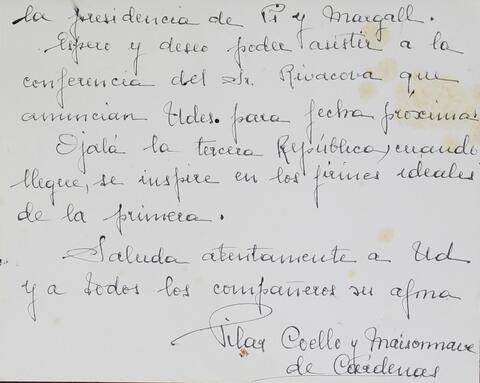 la presidencia de Pi y Margall.
Espero y deseo poder asistir a la
conferencia del Sr. Rivacova que
anuncian Udes. para fecha próxima.
Ojalá la tercera República, cuando
llegue, se inspire en los firmes ideales
de la primera.
Saluda atentamente a Ud
y a todos los compañeros su afma
Pilar Coello y Maisonnave
de Cárdenas